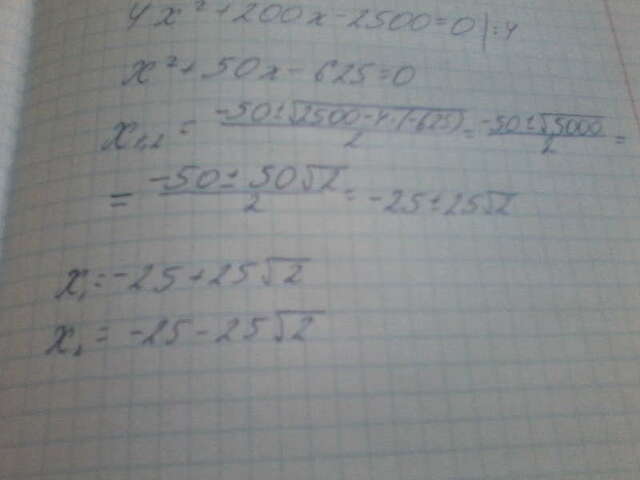 4x²+200x-2500=0 |:4
x²+50x-625=0
x₁,₂ = (-50±√(2500-4·(-625)))/2 = (-50±√5000)/2 =
= (-50±50√2)/2 = -25±25√2
x₁=-25+25√2
x₂=-25-25√2